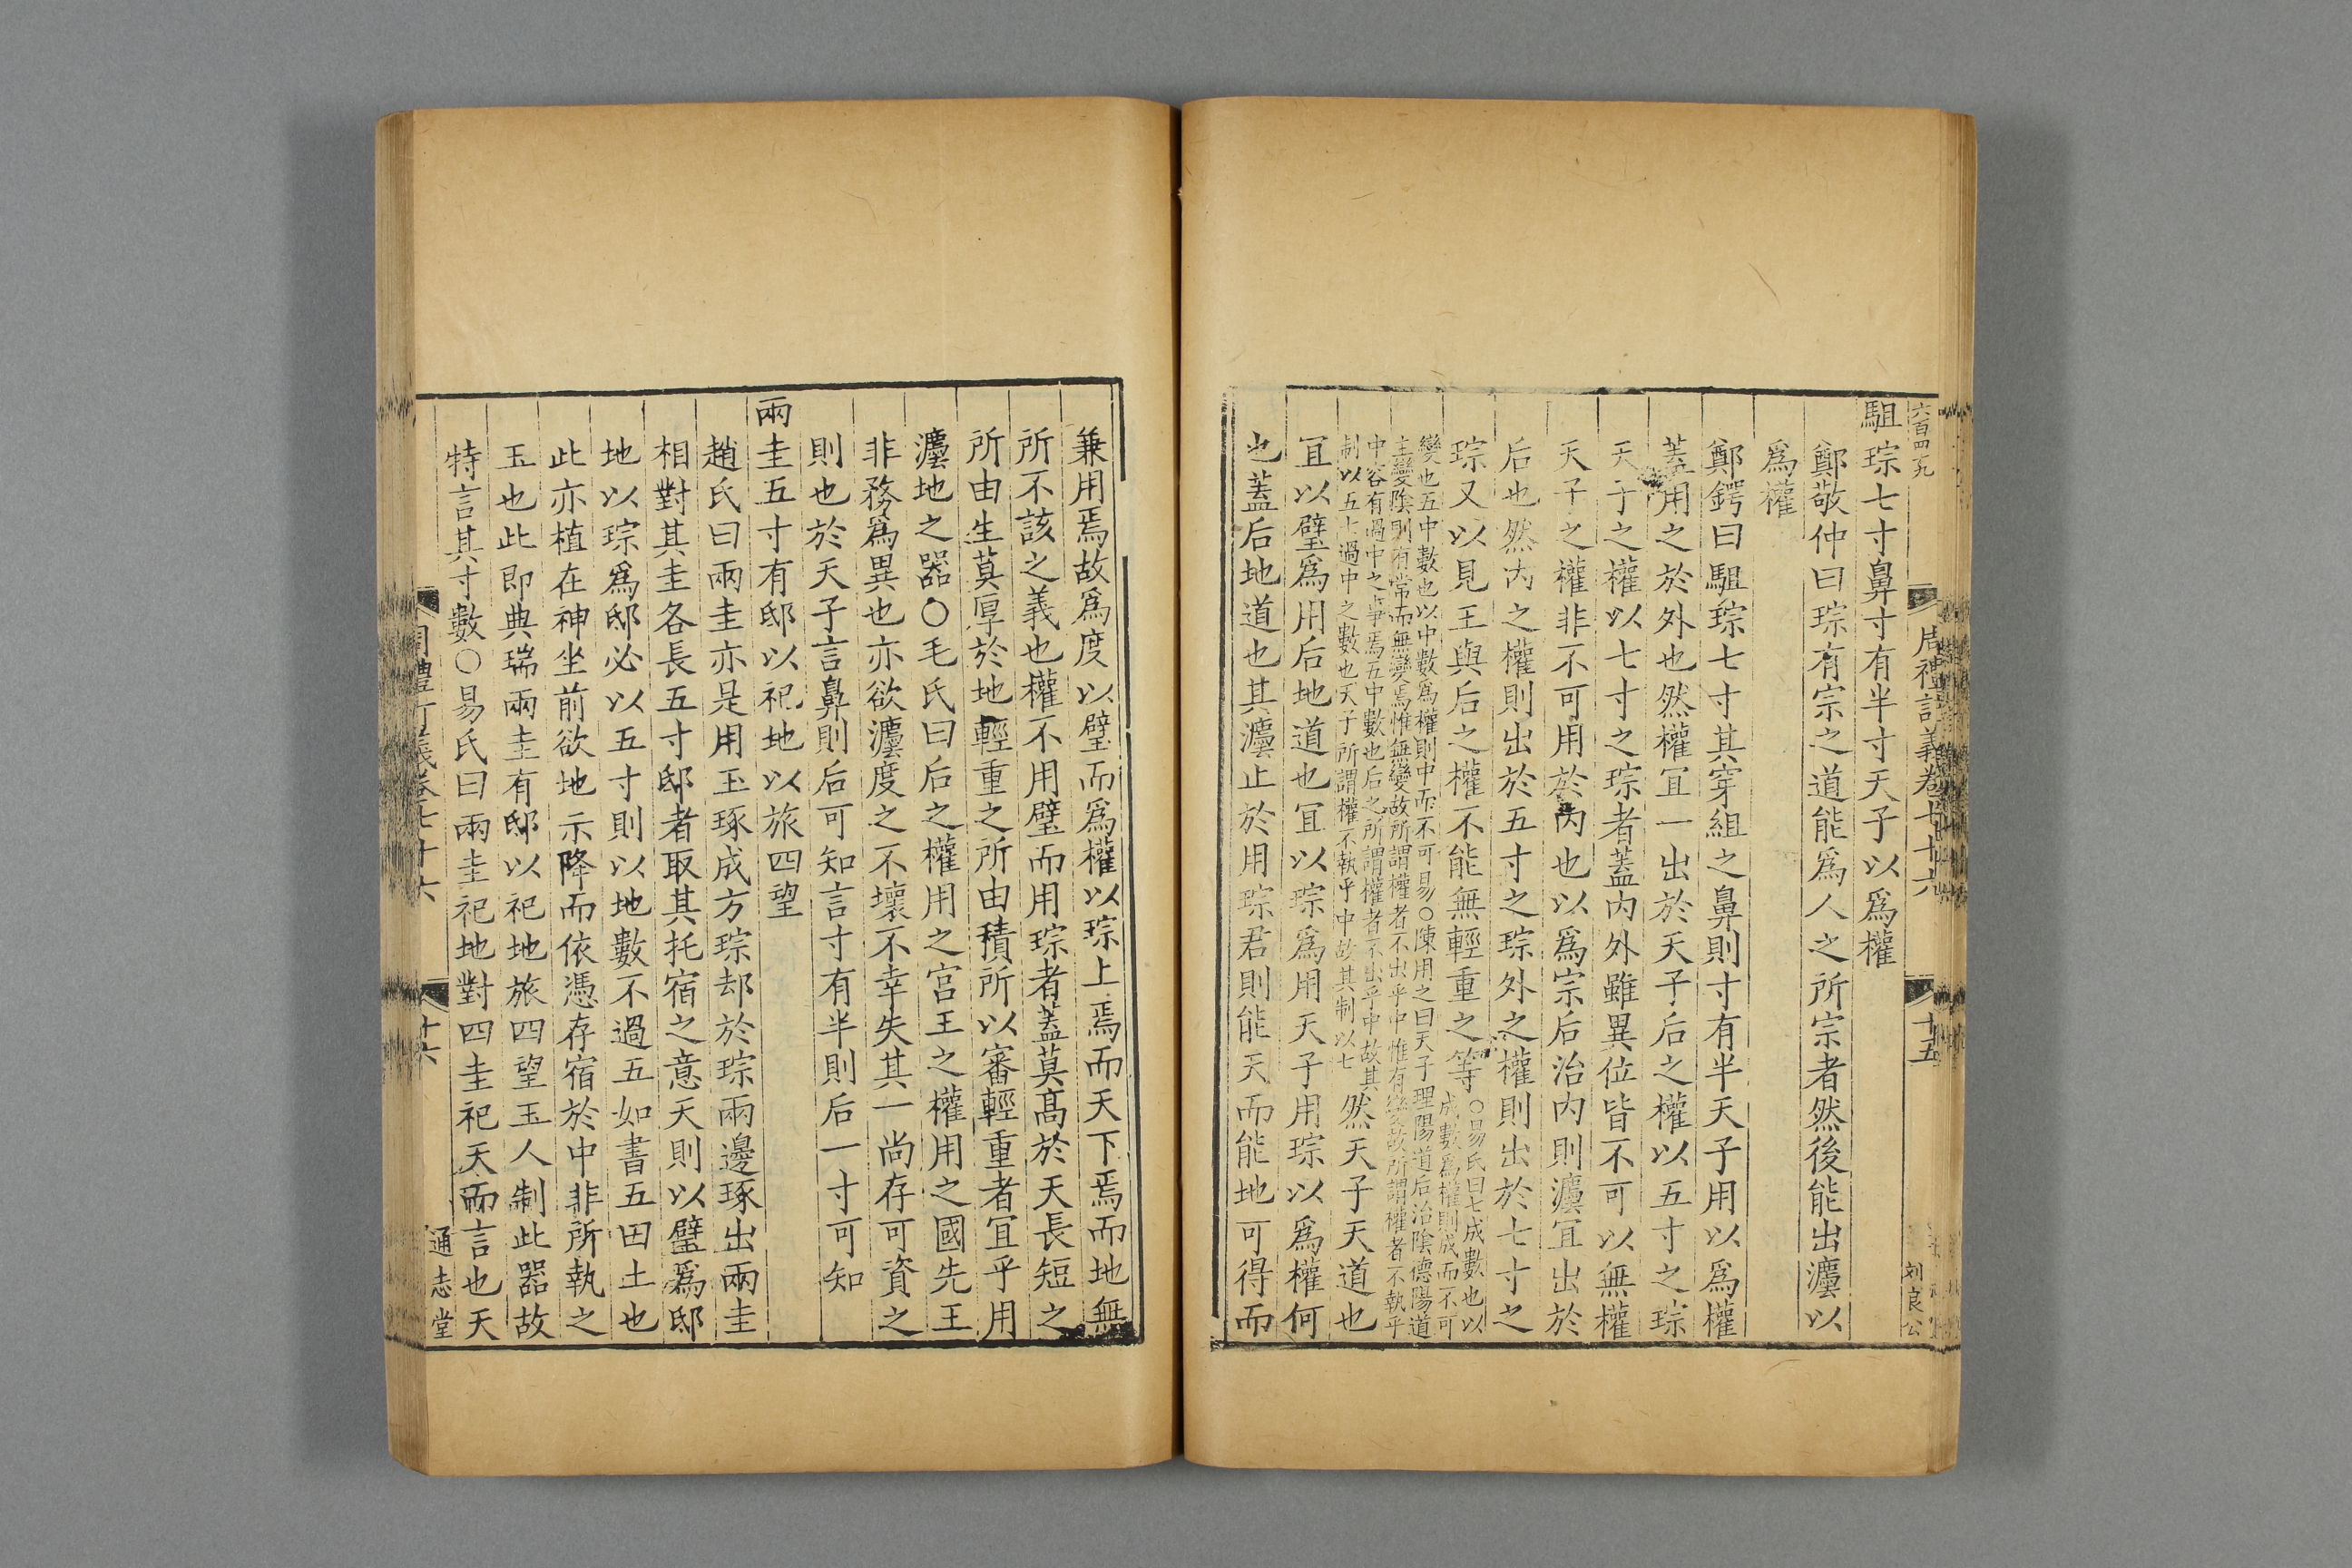 六百四十九
周禮訂義卷七十六
十五
刘良公
駔琮七寸鼻寸有半寸天子以爲權
鄭敬仲曰琮有宗之道能爲人之所宗者然後能出灋以
爲權
鄭鍔曰駔琮七寸其穿組之鼻則寸有半天子用以爲權
蓋用之於外也然權宜一出於天子后之權以五寸之琮
天子之權以七寸之琮者蓋內外雖異位皆不可以無權
天子之權非不可用於內也以爲宗后治內則灋宜出於
后也然內之權則出於五寸之琮外之權則出於七寸之
琮又以見王與后之權不能無輕重之等
○易氏曰七成數也以
成數爲權則成而不可
變也五中數也以中數爲權則中而不可易○陳用之曰天子理陽道后治陰德陽道
主變陰則有常而無變焉惟無變故所謂權者不出乎中惟有變故所謂權者不執乎
中容有過中之事焉五中數也后之所謂權者不出乎中故其
制以五七過中之數也天子所謂權不執乎中故其制以七
然天子天道也
宜以璧爲用后地道也宜以琮爲用天子用琮以爲權何
也蓋后地道也其灋止於用琮君則能天而能地可得而
兼用焉故爲度以璧而爲權以琮上焉而天下焉而地無
所不該之義也權不用璧而用琮者蓋莫高於天長短之
所由生莫厚於地輕重之所由積所以審輕重者宜乎用
灋地之器○毛氏曰后之權用之宮王之權用之國先王
非務爲異也亦欲灋度之不壞不幸失其一尚存可資之
則也於天子言鼻則后可知言寸有半則后一寸可知
兩圭五寸有邸以祀地以旅四望
趙氏曰兩圭亦是用玉琢成方琮却於琮兩邊琢出兩圭
相對其圭各長五寸邸者取其托宿之意天則以璧爲邸
地以琮爲邸必以五寸則以地數不過五如書五田土也
此亦植在神坐前欲地示降而依憑存宿於中非所執之
玉也此即典瑞兩圭有邸以祀地旅四望玉人制此器故
特言其寸數○易氏曰兩圭祀地對四圭祀天而言也天
周禮訂義卷七十六
十六
通志堂